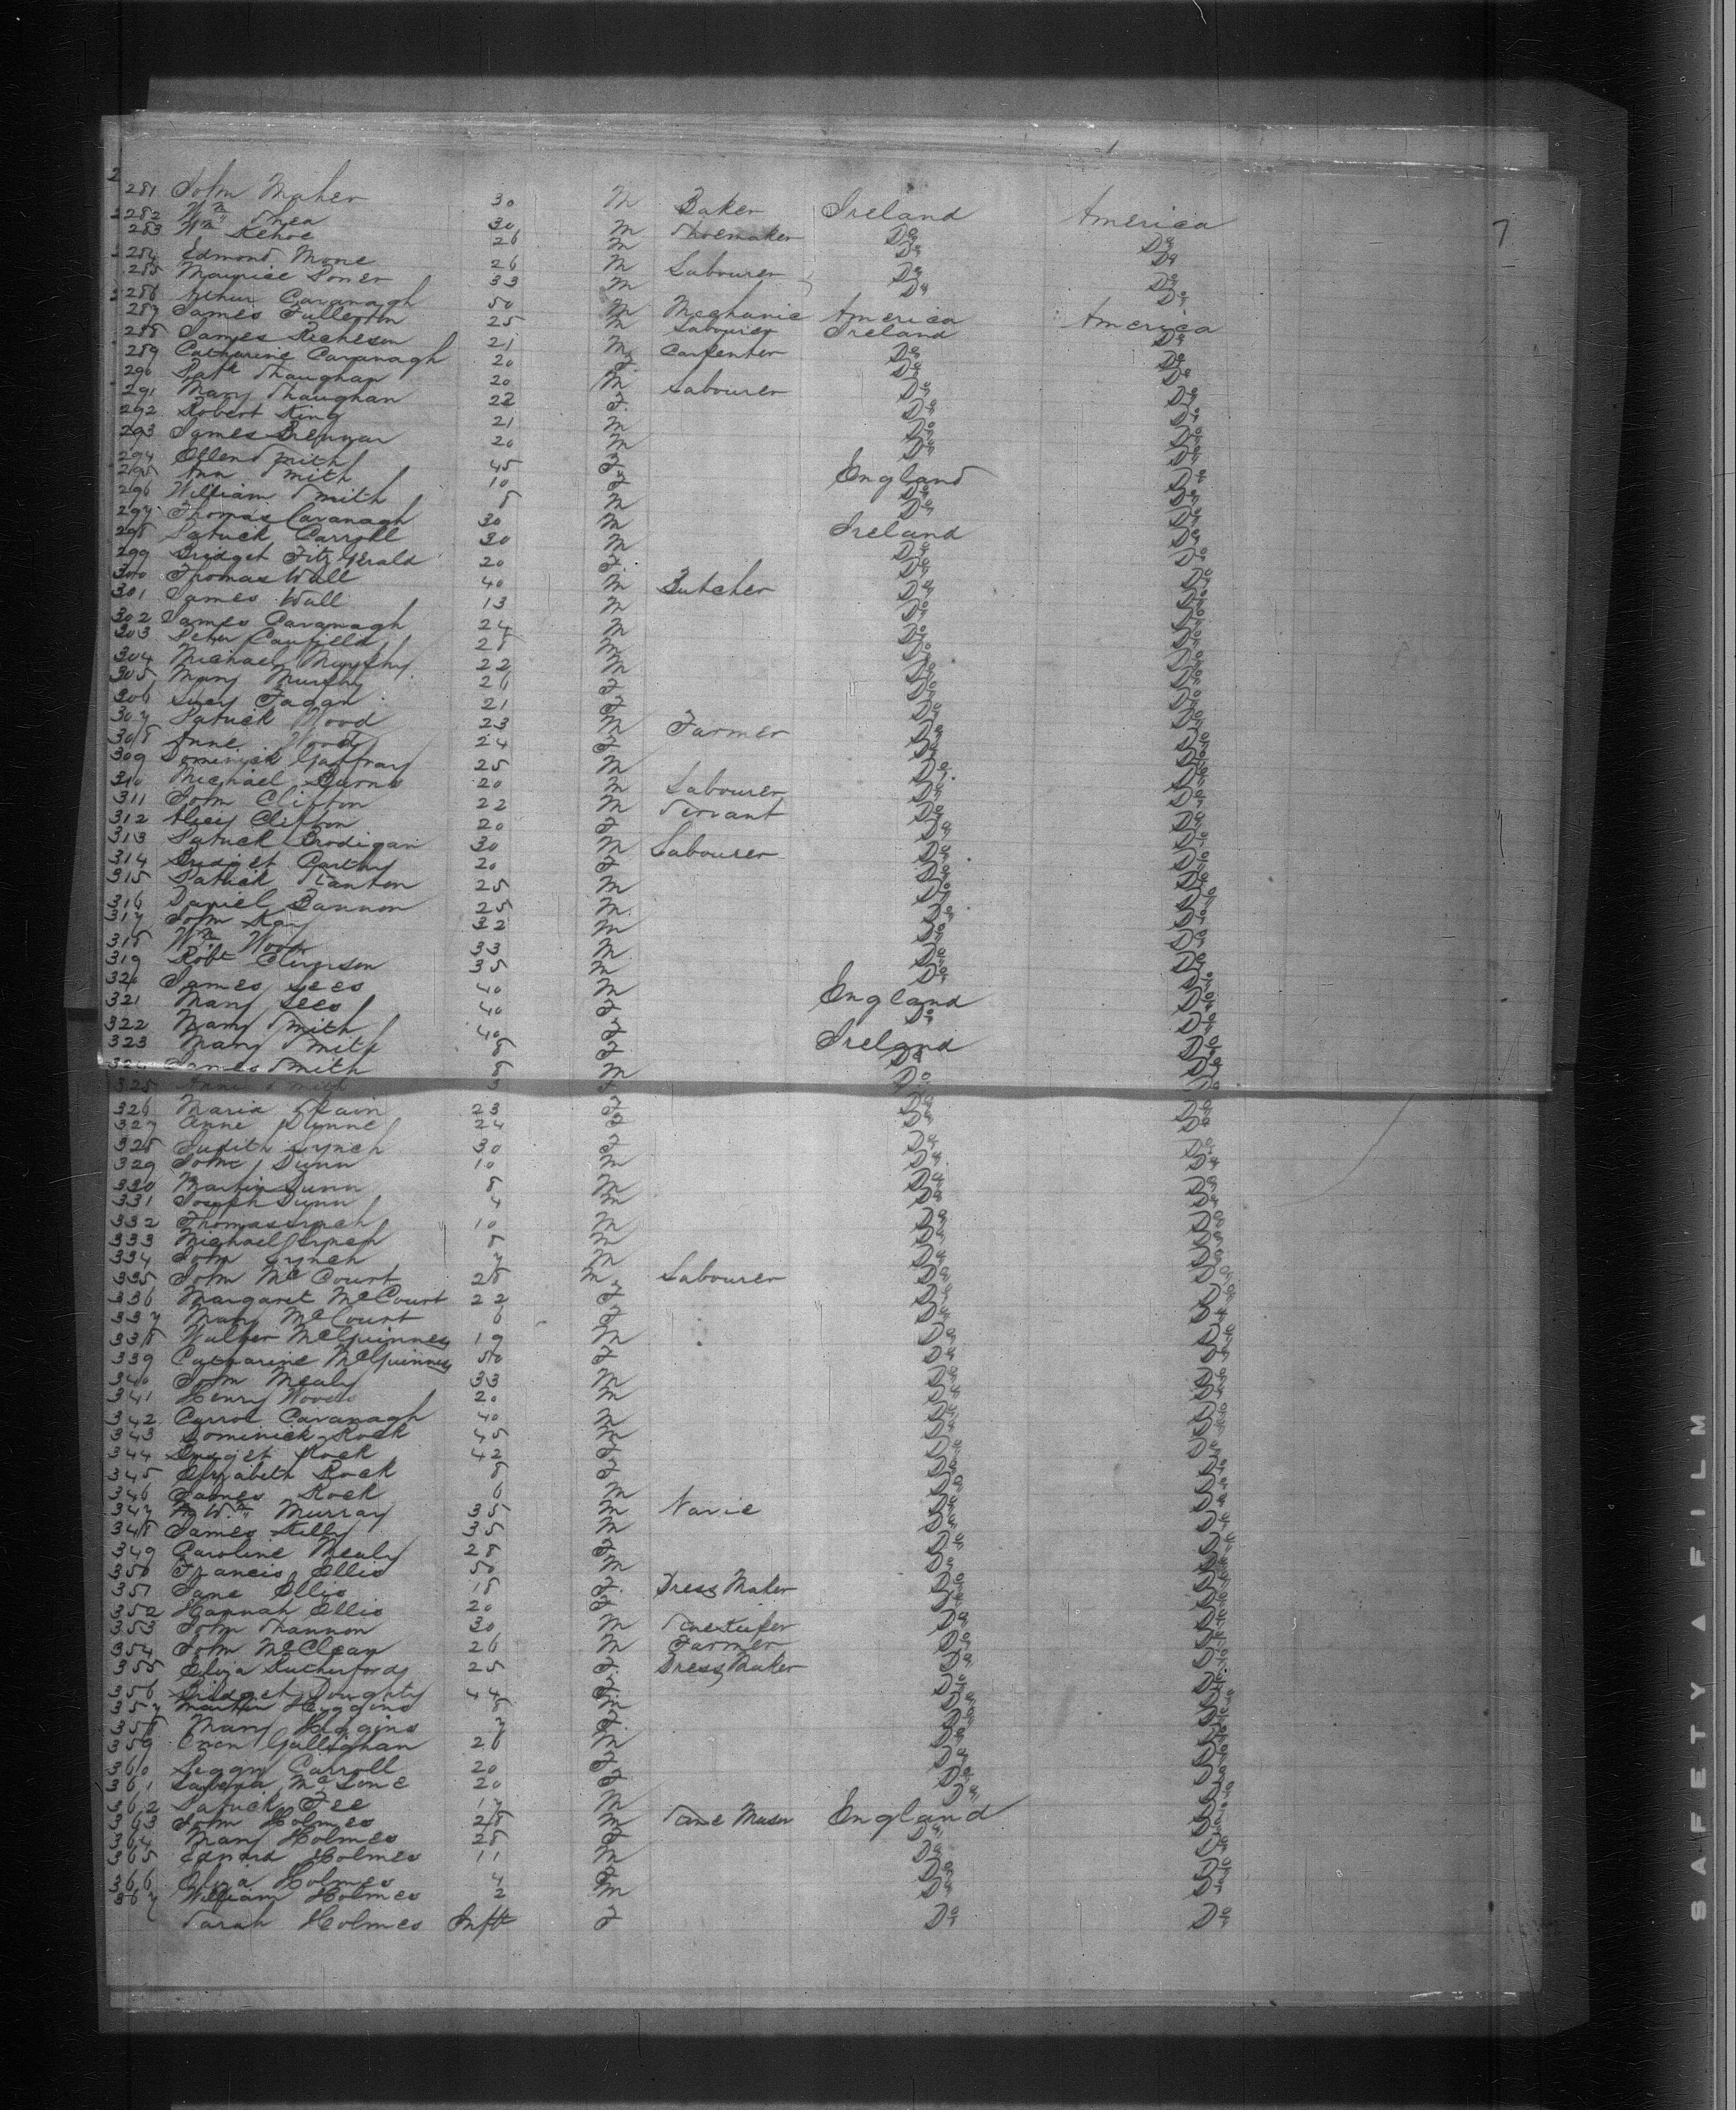 281 John Maher 30 M Baker Ireland America
282 Wm Shea 30 M Shoemaker Do Do
283 Wm Kehoe 26 M Do Do
284 Edmond Mone 26 M Labourer Do Do
285 Maurice Power 33 M Do Do
286 Arthur Cavanagh 50 M Mechanic America
287 James Fullerton 25 M Labourer Ireland America
288 James Richeson 21 M Carpenter Do Do
289 Catherine Cavanagh 20 F Do Do
290 Patk Shaughan 20 M Labourer Do Do
291 Mary Shaughan 22 F. Do Do
292 Robert King 21 M Do Do
293 James Brennan 20 M Do Do
294 Ellen Smith 45 F England Do
295 Ann Smith 10 F Do Do
296 William Smith 8 M Do Do
297 Thomas Cavanagh 30 M Ireland Do
298 Patrick Carroll 30 M Do Do
299 Bridget FitzGerald 20 F. Do Do
300 Thomas Wall 40 M Butcher Do Do
301 James Wall 13 M Do Do
302 James Cavanagh 24 M Do Do
303 Peter Caufield 28 M Do Do
304 Michael Murphy 22 M Do Do
305 Mary Murphy 26 F Do Do
306 Lucy Fagan 21 F Do Do
307 Patrick Wood 23 M Farmer Do Do
308 Anne Wood 24 F Do Do
309 Dominick Gaffray 25 M Do Do
310 Michael Burns 20 M Labourer Do Do
311 John Clifton 22 M Servant Do Do
312 Alicy Clifton 20 F Do Do
313 Patrick Brodigan 30 M Labourer Do Do
314 Bridget Carthy 20 F Do Do
315 Patrick Stanton 25 M Do Do
316 Daniel Bannon 25 M. Do Do
317 John Kay 32 M Do Do
318 Wm Wood 33 M Do Do
319 Robt 35 M Do Do
320 James Lees 40 M England Do
321 Mary Lees 40 F Do Do
322 Mary Smith 40 F Ireland Do
323 Mary Smith 8 F Do Do
324 James Smith 8 M Do Do
325 Anne Smith 3 F Do Do
326 Maria Spain 23 F Do Do
327 Anne Dunne 24 F Do Do
328 Judith Lynch 30 F Do Do
329 John Dunn 10 M Do Do
330 Martin Dunn 8 M Do Do
331 Joseph Dunn 4 M Do Do
332 Thomas Lynch 10 M Do Do
333 Michael Lynch 8 M Do Do
334 John Lynch 7 M Do Do
335 John McCourt 28 M Labourer Do Do
336 Margaret McCourt 22 F Do Do
337 Mary McCourt 6 F Do Do
338 Walter McGuinness 19 M Do Do
339 Catharine McGuinness 50 F Do Do
340 John Mealy 33 M Do Do
341 Henry Woods 20 M Do Do
342 Carrol Cavanagh 40 M Do Do
343 Dominick Rock 45 M Do Do
344 Bridget Rock 42 F Do Do
345 Elizabeth Rock 8 F Do Do
346 James Rock 6 M Do Do
347 Wm Murray 35 M Navie Do Do
348 James Kelly 35 M Do Do
349 Caroline Mealy 28 F Do Do
350 Francis Ellis 50 M Do Do
351 Jane Ellis 18 F. Dress Maker Do Do
352 Hannah Ellis 20 F Do Do
353 John Shannon 30 M Do Do
354 John McClean 26 M Farmer Do Do
355 Eliza Rutherford 25 F. Dress Maker Do Do
356 Bridget Doughty 44 F Do Do
357 Martin Higgins 8 M Do Do
358 Mary Higgins 7 F. Do Do
359 Owen Gallighan 26 M Do Do
360 Peggy Carroll 20 F Do Do
361 McSone 20 F Do Do
362 Patrick Fee 17 M Do Do
363 John Holmes 28 M England Do
364 Mary Holmes 28 F Do Do
365 Edward Holmes 11 M Do Do
366 Eliza Holmes 4 F Do Do
367 William Holmes 2 M Do Do
Sarah Holmes Inft F Do Do
7
SAFETY FILM